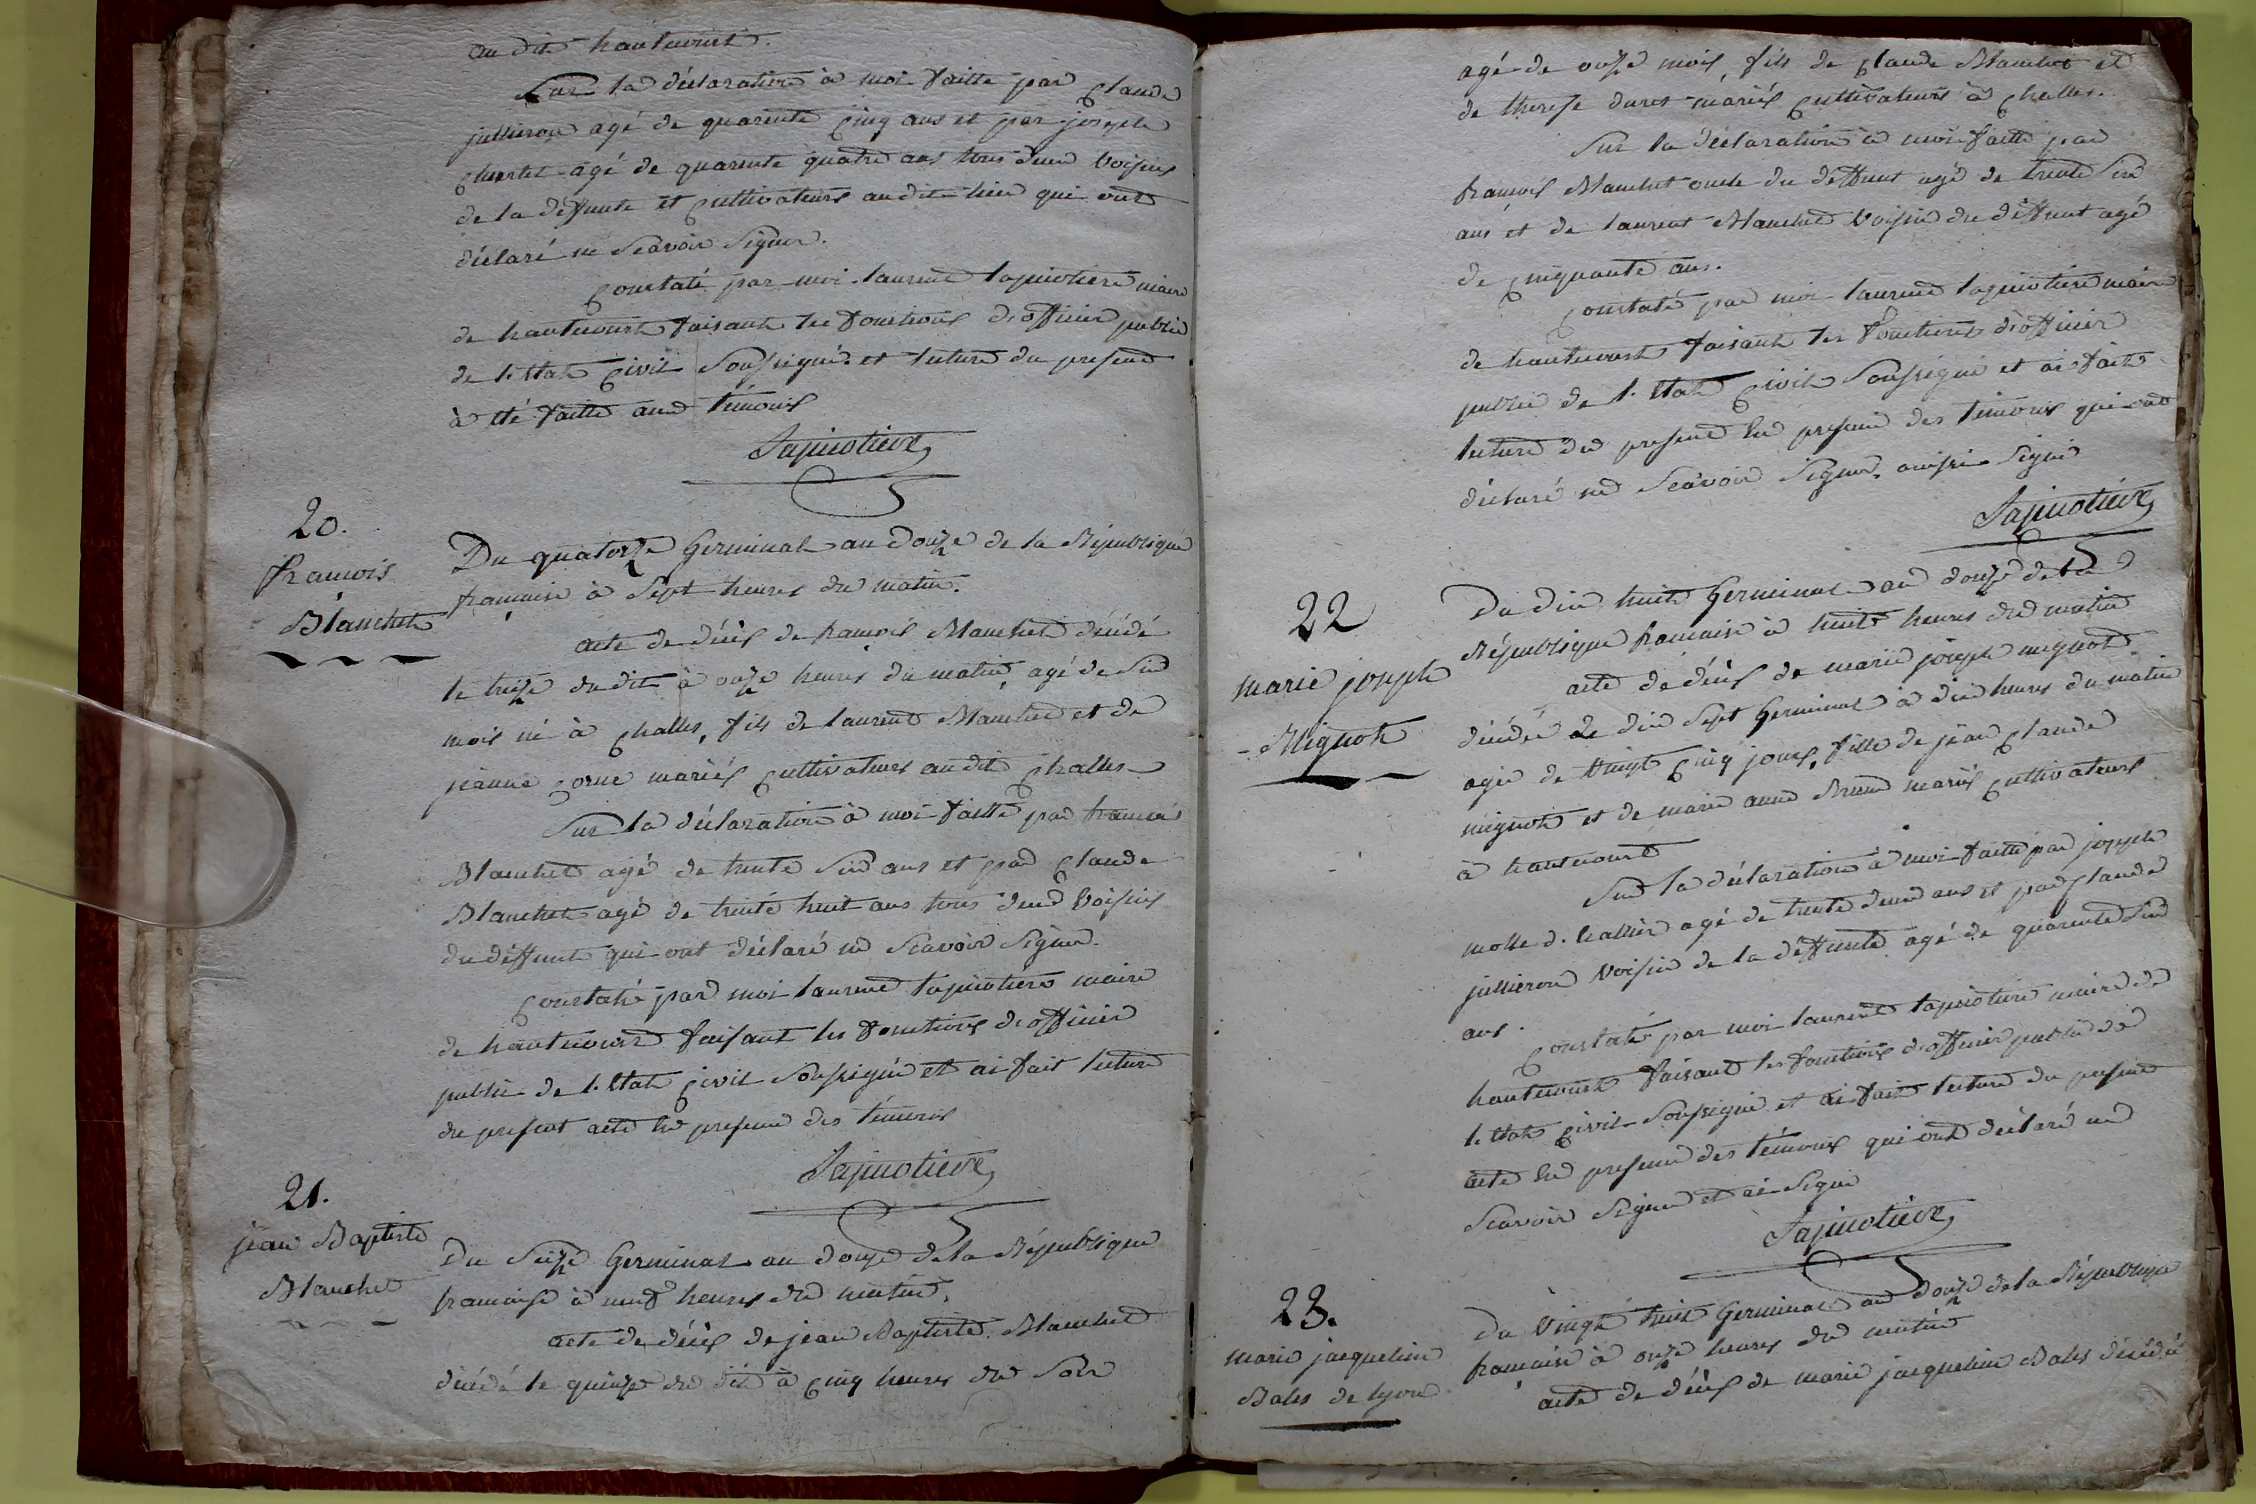 au dit hautecourt.
Sur la déclaration à moi faitte par Claude
jullieron agé de quarente cinq ans et par joseph
agé de quarente quatre ans tous deux voisins
de la deffunte et cultivateurs audit lieu qui ont
déclaré ne Scavoir Signer.
Constaté par moi laurent lapinotiere maire
de hautecourt faisant les fonctions d'officier public
de l'Etat civil Soussigné et lecture du present
à été faitte aux témoins
Lapinotiere
20.
françois
Blanchet
Du quatorze Germinal an douze de la République
française à Sept heures du matin.
acte de décès de françois Blanchet décédé
le treize du dit à onze heures du matin, agé de Six
mois né à Challes, fils de laurent Blanchet et de
jeanne mariés cultivateurs au dit Challes
Sur la déclaration à moi faitte par françois
Blanchet agé de trente Six ans et par Claude
Blanchet agé de trente huit ans tous deux voisins
du deffunt qui ont déclaré ne Scavoir Signer.
Constaté par moi laurent lapinotiere maire
de hautecourt faisant les fonctions d'officier
public de l'Etat civil Soussigné et ai fait lecture
du present acte en presence des témoins
Lapinotiere
21.
jean Baptiste
Blanchet
Du Seize Germinal an douze de la République
francaise à neuf heures du matin.
acte de décès de jean Baptiste Blanchet
décédé le quinze du dit à cinq heures du Soir
agé de onze mois, fils de Claude Blanchet et
de therese mariés cultivateurs à Challes.
Sur la déclaration à moi faitte par
françois Blanchet oncle du deffunt agé de trente Six
ans et de laurent Blanchet voisin du deffunt agé
de cinquante ans.
Constaté par moi laurent lapinotiere maire
de hautecourt faisant les fonctions d'officier
public de l'Etat civil Soussigné et ai fait
lecture du present en presence des témoins qui ont
déclaré ne Scavoir Signer. Signé
Lapinotiere
22
marie joseph
Mignot
Du dix huit Germinal an douze de la
République francaise à huit heures du matin
acte de décès de marie joseph mignot
décédée le dix Sept Germinal à dix heures du matin
agée de vingt cinq jours, fille de jean Claude
mignot et de marie anne mariés cultivateurs
à hautecourt
Sur la déclaration à moi faitte par joseph
agé de trente deux ans et par Claude
jullieron voisin de la deffunte agé de quarente Six
ans.
Constaté par moi laurent lapinotiere maire de
hautecourt faisant les fonctions d'officier public de
l'Etat civil Soussigné et ai fait lecture du present
acte en presence des témoins qui ont déclaré ne
Scavoir Signer et ai Signé
Lapinotiere
23.
marie jacqueline
Bales de lyon
Du vingt huit Germinal an douze de la République
française à onze heures du matin
acte de décès de marie jacqueline Bales décédée